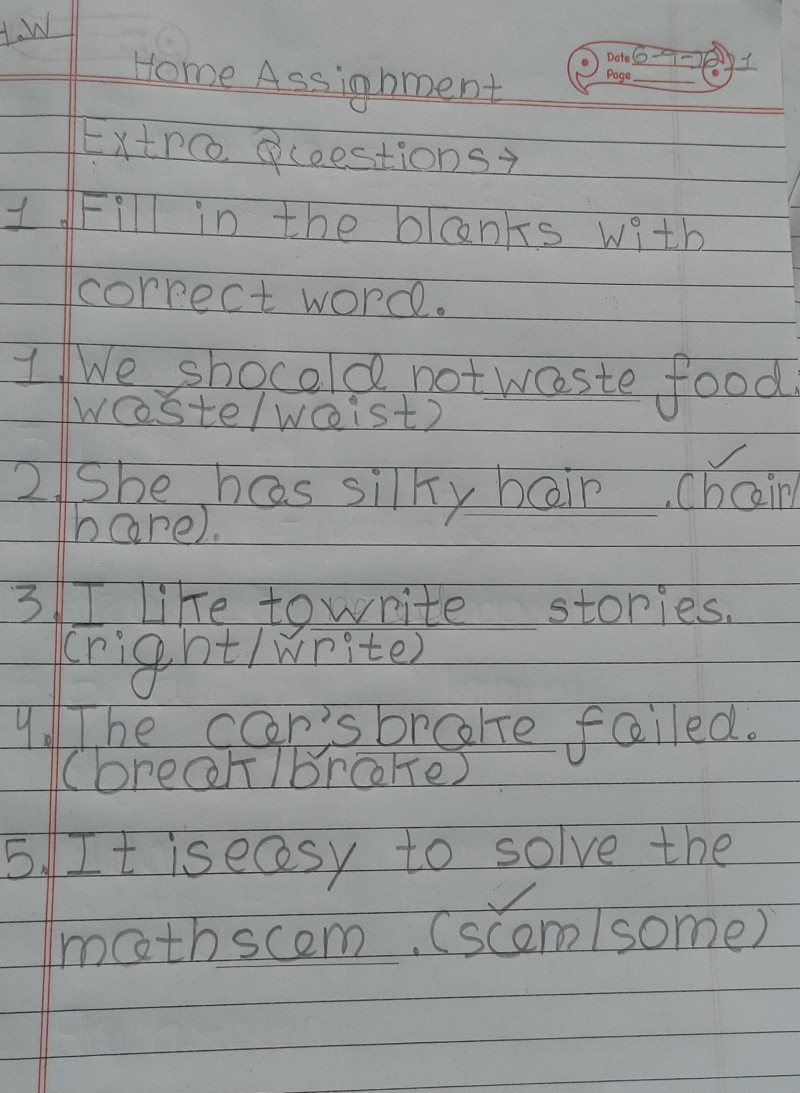 H.W
Date
Page
Home Assignment
Extra Questions→
1. Fill in the blanks with
correct word.
1. We should not waste food.
waste/waist)
2. She has silky hair. (hair/
hare).
3. I like to write stories.
(right/write)
4. The car's brake failed.
(break/brake)
5. It is easy to solve the
math sum. (sum/some)